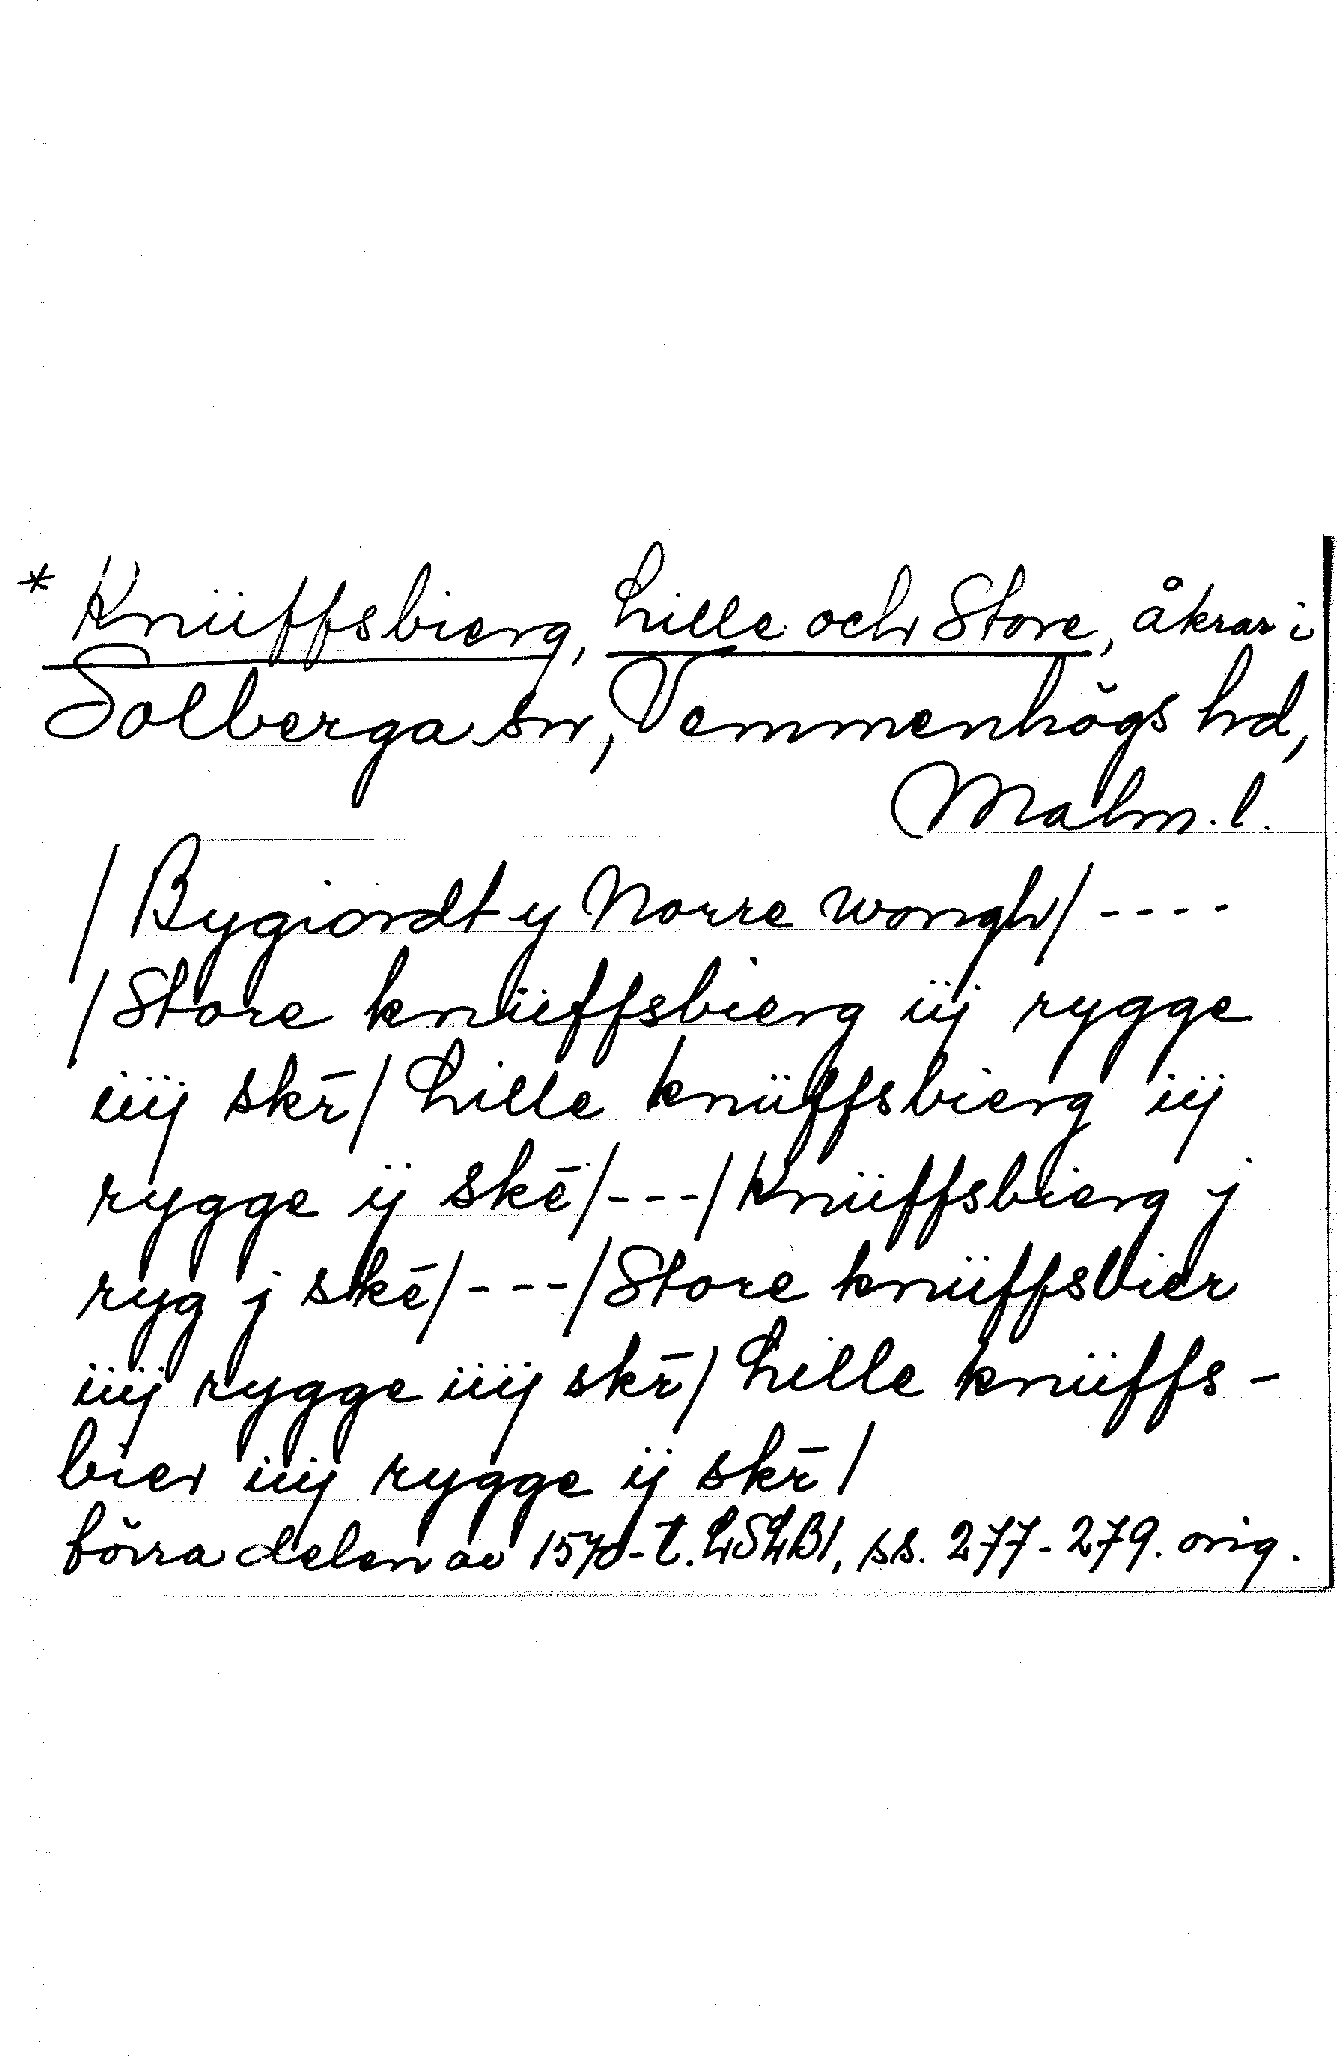 * Knüffsbierg, Lille och Store, åkrar i
Solberga sn, Vemmenhögs hd,
Malm. l.
/Bygiordt y Norre wongh/----
/Store knüffsbierg iij rygge
iiij skr̄/Lille knüffsbierg iij
rygge ij skē/---/Knüffsbierg j
ryg j skē/---/Store knüffsbier
iiij rygge iiij skr̄/Lille knüffs-
bier iiij rygge ij skr̄/
förra delen av 1570-t. LSLB1, ss. 277-279. orig.